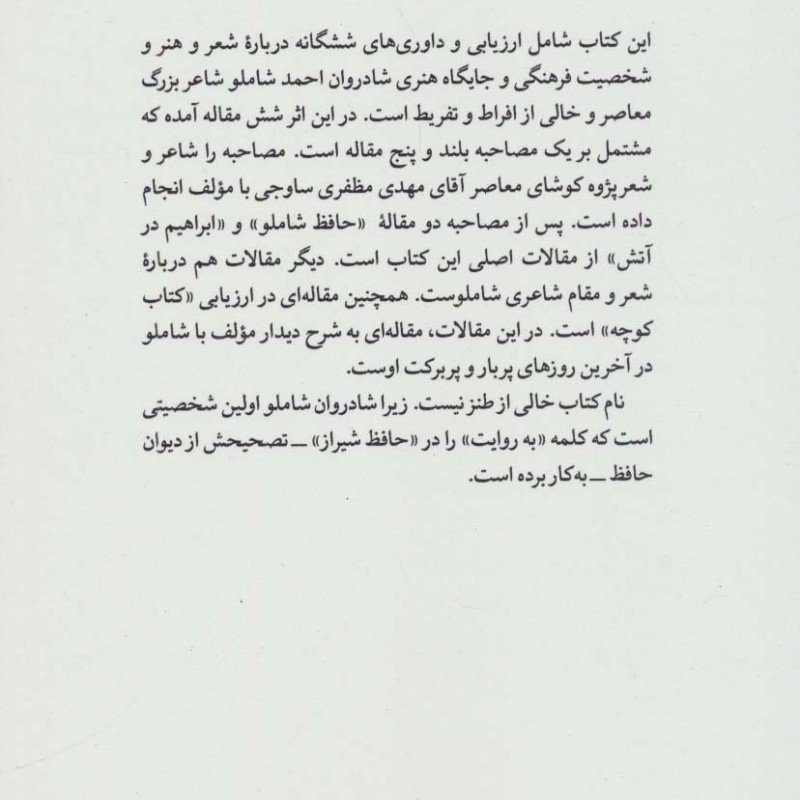 این کتاب شامل ارزیابی و داوری‌های ششگانه دربارهٔ شعر و هنر و
شخصیت فرهنگی و جایگاه هنری شادروان احمد شاملو شاعر بزرگ
معاصر و خالی از افراط و تفریط است. در این اثر شش مقاله آمده که
مشتمل بر یک مصاحبه بلند و پنج مقاله است. مصاحبه را شاعر و
شعرپژوه کوشای معاصر آقای مهدی مظفری ساوجی با مؤلف انجام
داده است. پس از مصاحبه دو مقالهٔ «حافظ شاملو» و «ابراهیم در
آتش» از مقالات اصلی این کتاب است. دیگر مقالات هم دربارهٔ
شعر و مقام شاعری شاملوست. همچنین مقاله‌ای در ارزیابی «کتاب
کوچه» است. در این مقالات، مقاله‌ای به شرح دیدار مؤلف با شاملو
در آخرین روزهای پربار و پربرکت اوست.
نام کتاب خالی از طنز نیست. زیرا شادروان شاملو اولین شخصیتی
است که کلمه «به روایت» را در «حافظ شیراز» ـــ تصحیحش از دیوان
حافظ ـــ به‌کار برده است.